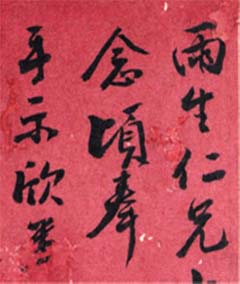 雨生仁兄
念頃奉
手示欣悉